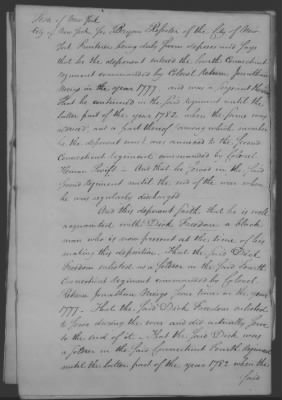 State of New York
City of New York ss. Bryan of the City of New
York being duly sworn deposes and says
that he the deponent entered the fourth Connecticut
regiment commanded by Colonel Return Jonathan
Meigs in the year 1777 and was a
that he continued in the said regiment until the
latter part of the year 1782 when the same was
and a part thereof among which number
he the deponent was, was annexed to the Second
Connecticut regiment commanded by Colonel
Heman Swift - And that he served in the said
Second regiment until the end of the war when
he was regularly discharged
And this deponent saith that he is well
acquainted with Dick Freedom a black
man who is now present at the time of his
making this deposition. That the said Dick
Freedom enlisted as a soldier in the said fourth
Connecticut Regiment commanded by Colonel
Return Jonathan Meigs some time in the year
1777 - That the said Dick Freedom enlisted
to serve during the war and did actually serve
to the end of it - That the said Dick was
a soldier in the said Connecticut Fourth Regiment
until the latter part of the year 1782 when the
said